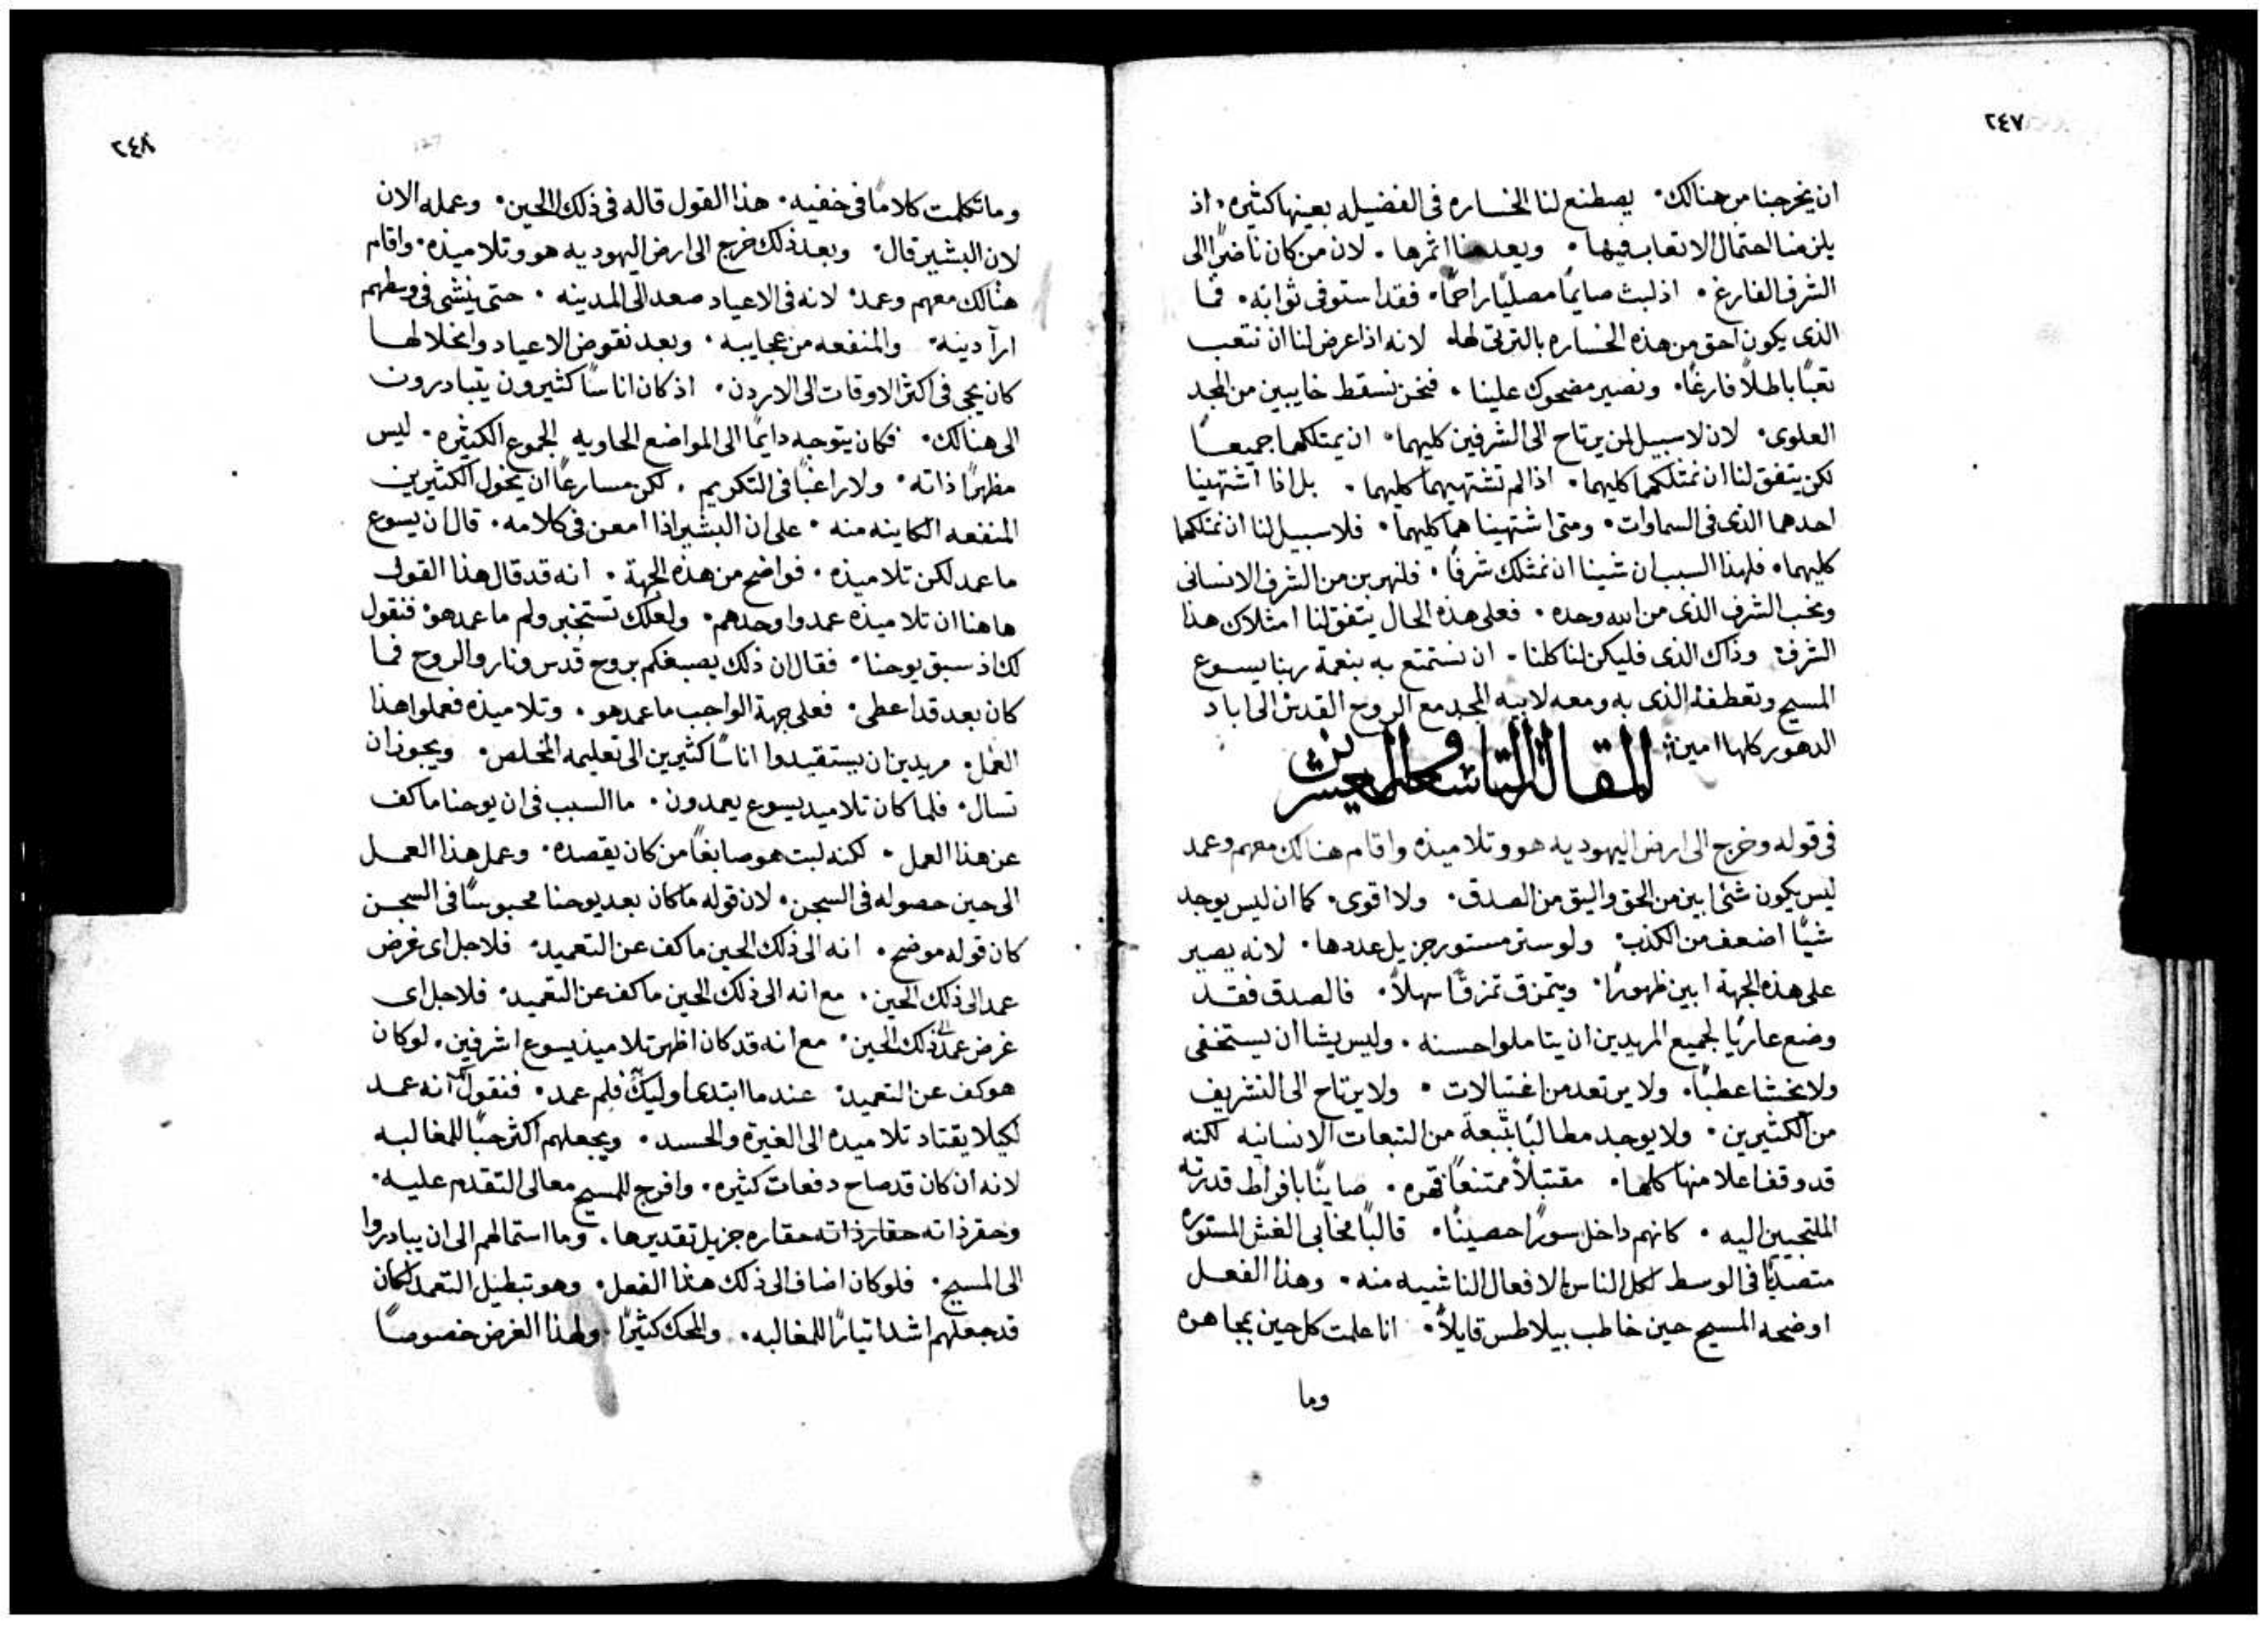 ٢٤٧
ان يخرجنا من هنالك٠ يصطنع لنا الخساره فى الفضيله بعينها كثيره٠ اذ
يلزمنا احتمال الاتعاب فيها٠ ويعدمنا اثمرها٠ لان من كان ناضرًا الى
الشرف الفارغ٠ اذ لبث صايمًا مصليًا راحمًا٠ فقد استوفى ثوابه٠ فما
الذى يكون احق من هذه الخساره بالترتى لها٠ لانه اذا عرض لنا ان نتعب
تعبًا باطلاً فارغًا٠ ونصير مضحوك علينا٠ فنحن نسقط خايبين من المجد
العلوى٠ لان لا سبيل لمن يرتاح الى الشرفين كليهما٠ ان يمتلكهما جميعًا
لكن يتفق لنا ان نمتلكهما كليهما٠ اذا لم تشتهيهما كليهما٠ بل اذا اشتهينا
احدهما الذى فى السماوات٠ ومتى اشتهينا هما كليهما٠ فلا سبيل لنا ان نمتلكهما
كليهما٠ فلهذا السبب ان شينا ان نمتلك شرفًا٠ فلنهربن من الشرف الانسانى
ونحب الشرف الذى من الله وحده٠ فعلى هذه الحال يتفق لنا امتلاك هذا
الشرف٠ وذاك الذى فليكن لنا كلنا٠ ان نستمتع به بنعمة ربنا يسوع
المسيح وتعطفه الذى به ومعه لابيه المجد مع الروح القدس الى اباد
الدهور كلها امين
المقالة التاسعه والعشرين
فى قوله وخرج الى ارض اليهوديه هو وتلاميذه واقام هنالك معهم وعمد
ليس يكون شئ ابين من الحق واليق من الصدق٠ ولا اقوى٠ كما ان ليس يوجد
شيًا اضعف من الكذب٠ ولو ستر مستور جزيل عددها٠ لانه يصير
على هذه الجهة ابين ظهورًا٠ ويتمزق تمزقًا سهلاً٠ فالصدق فقد
وضع عاريًا لجميع المريدين ان يتاملوا حسنه٠ وليس يشا ان يستخفى
ولا يخشا عطبًا٠ ولا يرتعد من اغتيالات٠ ولا يرتاح الى التشريف
من الكثيرين٠ ولا يوجد مطالبًا بتبعة من التبعات الانسانيه لكنه
قد وقف اعلا منها كلها٠ مقتبلاً ممتنعًا قهره٠ صاينًا بافراط قدرته
الملتجيين اليه٠ كانهم داخل سورًا حصينًا٠ قالبًا مخابى الغش المستوره
متصديًا فى الوسط لكل الناس بالافعال الناشيه منه٠ وهذا الفعل
اوضحه المسيح حين خاطب بيلاطس قايلاً٠ انا علمت كل حين بمجاهره
وما
٢٤٨
وما تكلمت كلامًا فى خفيه٠ هذا القول قاله فى ذلك الحين٠ وعمله الان
لان البشير قال٠ وبعد ذلك خرج الى ارض اليهوديه هو وتلاميذه٠ واقام
هنالك معهم وعمد٠ لانه فى الاعياد صعد الى المدينه٠ حتى ينشى فى وسطهم
ارآ دينه٠ والمنفعه من عجايبه٠ وبعد نقوض الاعياد وانحلالها
كان يجى فى اكثر الاوقات الى الاردن٠ اذ كان اناسًا كثيرون يتبادرون
الى هنالك٠ فكان يتوجه دايمًا الى المواضع الحاويه الجموع الكثيره٠ ليس
مظهرًا ذاته٠ ولا راغبًا فى التكريم٠ لكن مسارعًا ان يخول الكثيرين
المنفعه الكاينه منه٠ على ان البشير اذا امعن فى كلامه٠ قال ان يسوع
ما عمد لكن تلاميذه٠ فواضح من هذه الجهة٠ انه قد قال هذا القول
هاهنا ان تلاميذه عمدوا وحدهم٠ ولعلك تستخبر ولم ما عمد هو٠ فنقول
لك اذ سبق يوحنا٠ فقال ان ذلك يصبغكم بروح قدس ونار والروح فما
كان بعد قد اعطى٠ فعلى جهة الواجب ما عمد هو٠ وتلاميذه فعلوا هذا
العمل٠ مريدين ان يستقيدوا اناسًا كثيرين الى تعليمه المخلص٠ ويجوز ان
تسال٠ فلما كان تلاميد يسوع يعمدون٠ ما السبب فى ان يوحنا ما كف
عن هذا العمل٠ لكنه لبت هو صابغًا من كان يقصده٠ وعمل هذا العمل
الى حين حصوله فى السجن٠ لان قوله ما كان بعد يوحنا محبوسًا فى السجن
كان قوله موضح٠ انه الى ذلك الحين ما كف عن التعميد٠ فلاجل اى غرض
عمد الى ذلك الحين٠ مع انه الى ذلك الحين ما كف عن التعميد٠ فلاجل اى
غرض عمد الى ذلك الحين٠ مع انه قد كان اظهر تلاميذ يسوع اشرفين٠ لو كان
هو كف عن التعميد٠ عندما ابتدى اوليك فلم عمد٠ فنقول انه عمد
لكيلا يقتاد تلاميده الى الغيرة والحسد٠ ويجعلهم اكثر حبًا للمغالبه
لانه ان كان قد صاح دفعات كثيره٠ وافرج للمسيح معالى التقدم عليه٠
وحقر ذاته حقارذاته حقاره جزيل تقديرها٠ وما استمالهم الى ان يبادروا
الى المسيح٠ فلو كان اضاف الى ذلك هذا الفعل٠ وهو تبطيل التعمد لكان
قد جعلهم اشد اتيارًا للمغالبه٠ والمحك كثيرًا٠ ولهذا الغرض خصوصًا